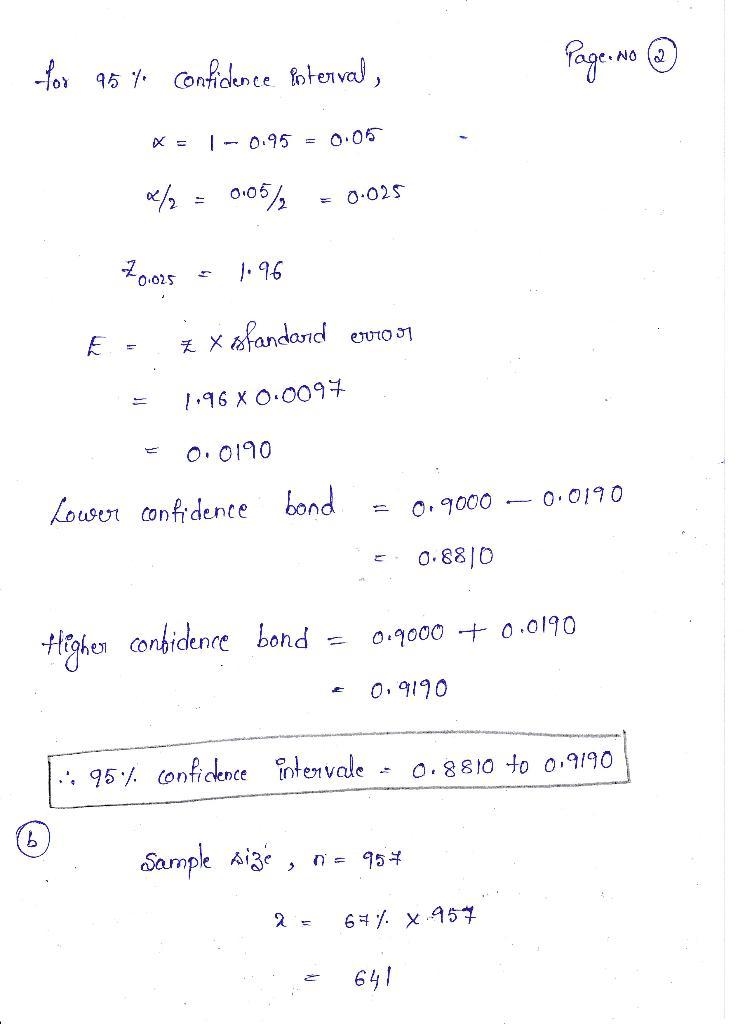 Page. No 2
for 95 % confidence interval,
α = 1 - 0.95 = 0.05
α/2 = 0.05/2 = 0.025
Z0.025 = 1.96
E = z × standard error
= 1.96 × 0.0097
= 0.0190
Lower confidence bond = 0.9000 - 0.0190
= 0.8810
Higher confidence bond = 0.9000 + 0.0190
= 0.9190
∴ 95% confidence intervale = 0.8810 to 0.9190
b
Sample size, n = 957
x = 67% × 957
= 641